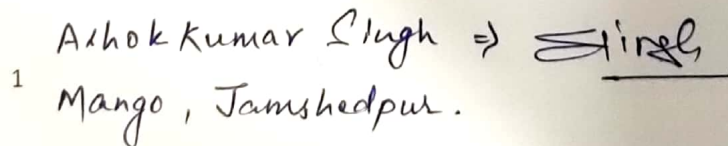 Ashok Kumar Singh ⇒ Singh
1
Mango, Jamshedpur.